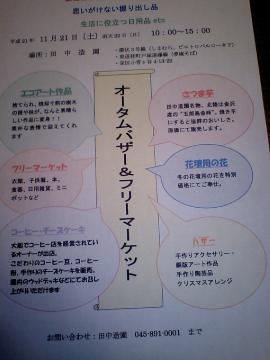 思いがけない掘り出し品
生活に役立つ日用品 etc
平成21年 11月21日(土) 10:00～15:00
場所：田中造園
エコアート作品
捨てられ、焼却寸前の樹木
素朴な表情で迎えてくれ
ます
フリーマーケット
衣類、子供服、本、
食器、日用雑貨、ミニ
ポットなど
コーヒー・チーズケーキ
大船でコーヒー店を経営されている
オーナーが出店。
こだわりのコーヒー豆、コーヒー
粉、手作りのチーズケーキを販売。
庭先のウッドデッキなどにてお召し
上がりいただけます
オータムバザー&フリーマーケット
さつま芋
花壇用の花
冬の花壇用の花を特別
価格にてご奉仕。
バザー
手作りアクセサリー・
銅版アート作品
手作り陶芸品
クリスマスアレンジ
お問い合わせ：田中造園 045-891-0001 まで